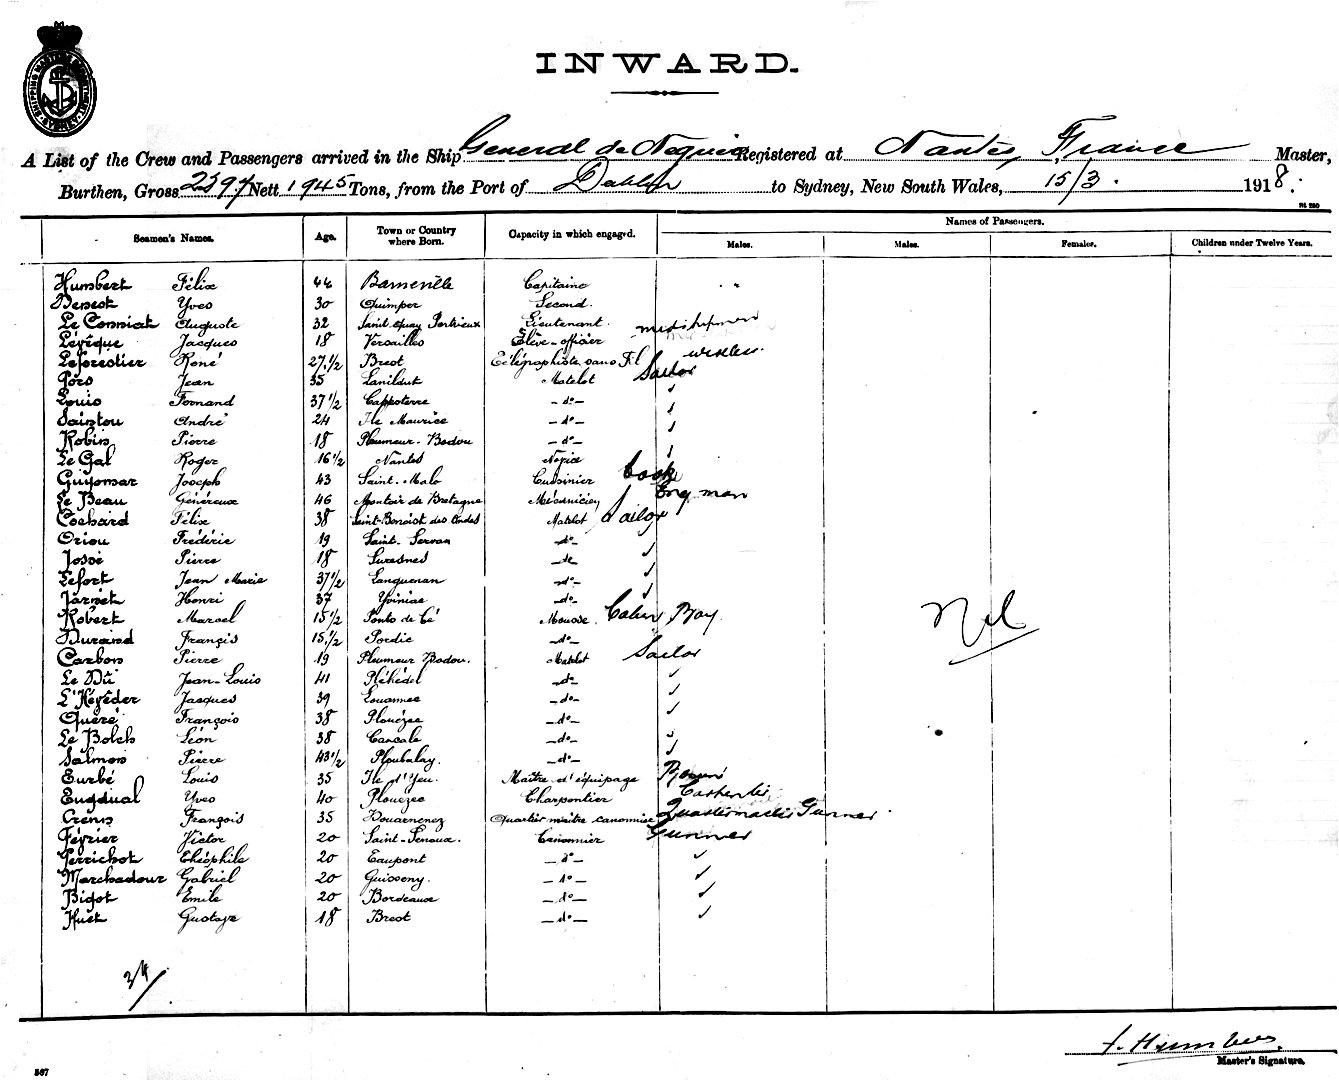 SHIPPING MASTER'S DEPARTMENT SYDNEY
INWARD.
A List of the Crew and Passengers arrived in the Ship General de Negrier Registered at Nantes, France Master,
Burthen, Gross 2597 Nett 1945 Tons, from the Port of to Sydney, New South Wales, 15/3. 1918.
Names of Passengers.
Seamen's Names. Age. Town or Country where Born. Capacity in which engaged. Males. Males. Females. Children under Twelve Years.
Humbert Félix 44 Barneville Capitaine
Benest Yves 30 Quimper Second.
Le Conniat Auguste 32 Saint Quay Portrieux Lieutenant.
Lévêque Jacques 18 Versailles Elève-officier midshipman
Leforestier René 27 1/2 Brest Télégraphiste sans Fil wireless
Pors Jean 35 Lanildut Matelot Sailor
Louis Fernand 37 1/2 Cappoterre -do-
Saintou André 24 Ile Maurice -do-
Robin Pierre 18 Pleumeur-Bodou -do-
Le Gal Roger 16 1/2 Nantes Novice
Guyomar Joseph 43 Saint-Malo Cuisinier Cook
Le Beau Généreux 46 Montoir de Bretagne Mécanicien Eng man
Cochard Félix 38 Saint-Benoist des Ondes Matelot Sailor
Oriou Frédéric 19 Saint-Servan -do-
Josse Pierre 18 Suresnes -do-
Lefort Jean Marie 37 1/2 Languenan -do-
Jarnet Henri 37 Yviniac -do-
Robert Marcel 15 1/2 Ponts de Cé Mousse Cabin Boy
Durand François 15 1/2 Pordic -do-
Carbon Pierre 19 Pleumeur Bodou. Matelot Sailor
Le Dû Jean-Louis 41 Pléhédel -do-
L'Hévéder Jacques 39 Louannec -do-
Quéré François 38 Plouézec -do-
Le Bolch Léon 38 Cancale -do-
Salmon Pierre 43 1/2 Ploubalay. -do-
Turbé Louis 35 Ile d'Yeu. Maître d'équipage
Eugdual Yves 40 Plouézec Charpentier Carpenter
Crenn François 35 Douarnenez Quartier maître canonnier Quartermaster Gunner
Février Victor 20 Canonnier Gunner
Perrichot Théophile 20 Taupont -do-
Marchadour Gabriel 20 Guisseny. -do-
Bigot Emile 20 Bordeaux -do-
Huet Gustave 18 Brest -do-
Nil
34/
F. Humbert
Master's Signature.
567